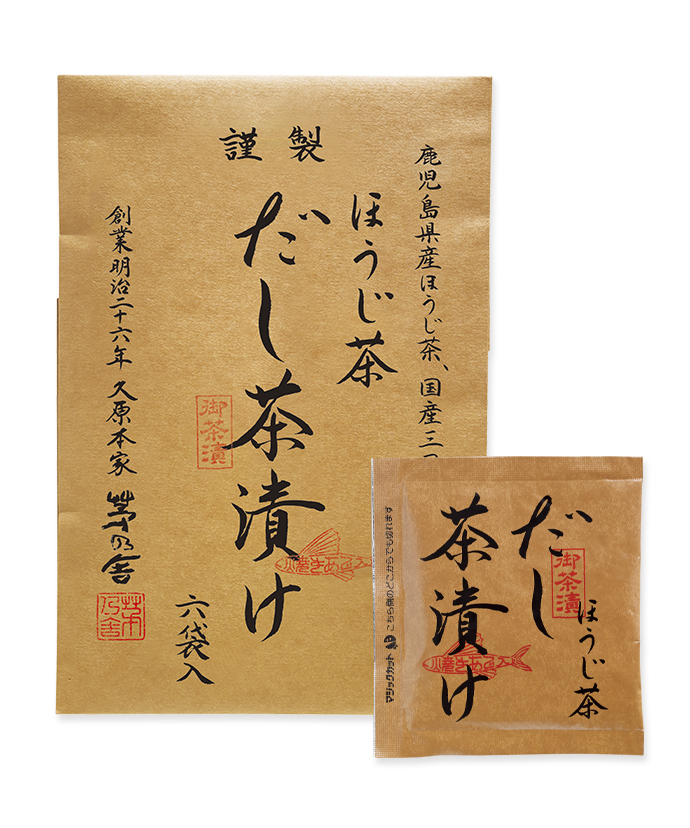 謹製
鹿児島県産ほうじ茶、国産三
ほうじ茶
だし茶漬け
御茶漬
焼きあご入
六袋入
創業明治二十六年 久原本家 茅乃舎
茅乃舎
だし
茶漬け
ほうじ茶
御茶漬
焼きあご入
マジックカット
こちら側のどこからでも切れます